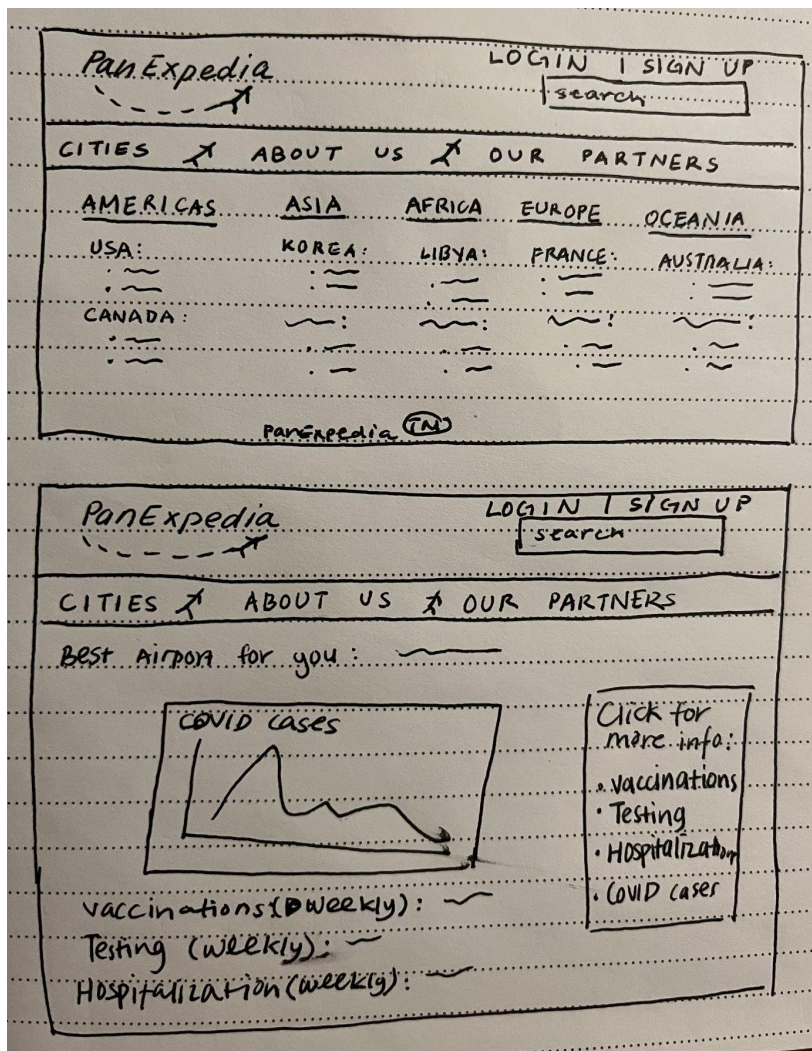 PanExpedia
LOGIN | SIGN UP
search
CITIES ABOUT US OUR PARTNERS
AMERICAS ASIA AFRICA EUROPE OCEANIA
USA: KOREA: LIBYA: FRANCE: AUSTRALIA:
CANADA:
PanExpedia TM
PanExpedia
LOGIN | SIGN UP
search
CITIES ABOUT US OUR PARTNERS
Best Airport for you:
COVID cases
Click for
more info:
• vaccinations
• Testing
• Hospitalization
• COVID cases
vaccinations (weekly):
Testing (weekly):
Hospitalization (weekly):